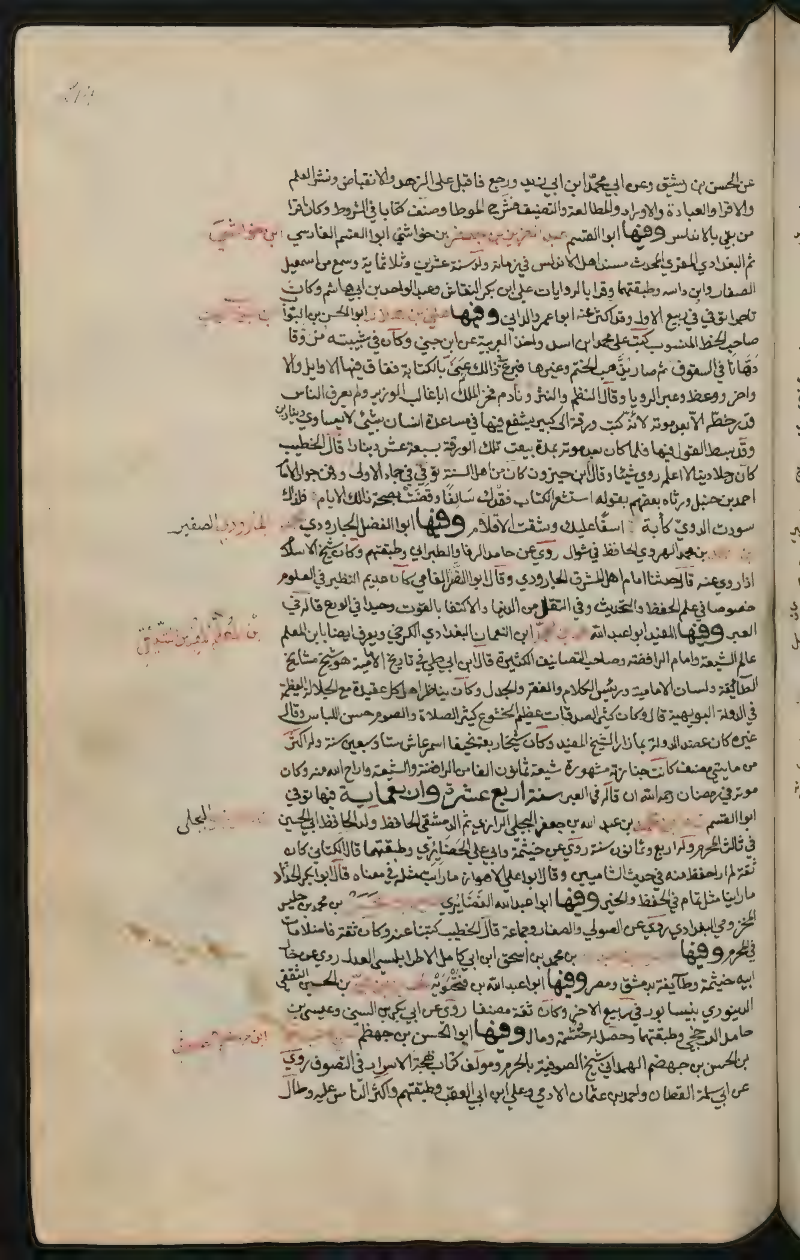 عن الحسن بن رشيق وعن ابي محمد ابن ابي زيد ورجع فاقبل على الزهد والانقباض ونشر العلم
والاقرا والعبادة والاوراد والمطالعة والتصنيف فشرح الموطا وصنف كتابا في الشروط وكان اقرا
من بقي بالاندلس وفيها ابو القسم عبد العزيز بن جعفر بن خواشتي ابو القسم الفارسي
ابن خواشتي
ثم البغدادي المقري المحدث مسند اهل الاندلس في زمانه ولد سنة عشرين وثلاثماية وسمع من اسمعيل
الصفار وابن داسه وطبقتهما وقرا بالروايات على ابي بكر النقاش وعبد الواحد بن ابي هاشم وكان
تاجرا توفي في ربيع الاول وقد اكثر عنه ابو عمرو الداني وفيها علي بن هلال ابو الحسن بن البوا
صاحب الخط المنسوب كتب على محمد ابن اسد واخذ العربية عن ابن جني وكان في شبيبته مزوقا
دهانا في السقوف ثم صار يذهب الختم وغيرها فبرع في ذلك ثم عني بالكتابة ففاق فيها الاوايل والا
واخر ووعظ وعبر الرويا وقال النظم والنثر ونادم فخر الملك ابا غالب الوزير ولم يعرف الناس
قدر خطه الا بعد موته لانه كتب ورقة الى كبير يشفع فيها في مساعدة انسان بشيء لا يساوي دينارين
وقد بسط القول فيها فلما كان بعد موته بمدة بيعت تلك الورقة بسبعة عشر دينارا قال الخطيب
كان رجلا دينا لا اعلمه روى شيئا وقال ابن خيرون كان من اهل السنة توفي في جماد الاولى ودفن جوار الامام
احمد بن حنبل ورثاه بعضهم بقوله استشعر الكتاب فقدك سالفا وقضت بصحة ذلك الايام فلذاك
سودت الدوي كآبة اسفا عليك وشقت الاقلام وفيها ابو الفضل الجارودي
الجارودي الصغير
بن محمد الهروي الحافظ في شوال روى عن حامد الرفا والطبراني وطبقتهم وكان شيخ الاسلام
اذا روى عنه قال حدثنا امام اهل المشرق الجارودي وقال ابو النضر الفامي كان عديم النظير في العلوم
خصوصا في علم الحفظ والتحديث وفي التقلل من الدنيا والاكتفا بالقوت وحيدا في الورع قاله في
العبر وفيها المفيد ابو عبد الله محمد بن محمد ابن النعمان البغدادي الكرخي ويعرف ايضا بابن المعلم
عالم الشيعة وامام الرافضة وصاحب التصانيف الكثيرة قال ابن ابي طي في تاريخ الامامية هو شيخ مشايخ
الطائفة ولسان الامامية ورئيس الكلام والفقه والجدل وكان يناظر اهل كل عقيدة مع الجلالة العظيمة
في الدولة البويهية قال وكان كثير الصدقات عظيم الخشوع كثير الصلاة والصوم حسن اللباس وقال
غيره كان عضد الدولة ربما زار الشيخ المفيد وكان شيخا ربعة نحيفا اسمر عاش ستا وسبعين سنة وله اكثر
من مايتي مصنف كانت جنازته مشهورة شيعه ثمانون الفا من الرافضة والشيعة واراح الله منه وكان
موته في رمضان رحمه الله ان قاله في العبر سنة اربع عشرة واربعماية فيها توفي
ابو القسم تمام بن محمد بن عبد الله بن جعفر البجلي الرازي ثم الدمشقي الحافظ ولد الحافظ ابي الحسين
البجلي
في ثالث المحرم وله اربع وثمانون سنة روى عن خيثمة وابي علي الحضايري وطبقتهما قال الكتاني كان
ثقة لم ار احفظ منه في حديث الشاميين وقال ابو علي الاهوازي ما رايت مثله في معناه قال ابو بكر الحداد
ما راينا مثل تمام في الحفظ والخير وفيها ابو عبد الله الغضايري بن محمد بن حليس
المخزومي البغدادي روى عن الصولي والصفار وجماعة قال الخطيب كتبنا عنه وكان ثقة فاضلا مات
في المحرم وفيها بن محمد بن اسحق ابن ابي كامل الاطرابلسي العدل روى عن خال
ابيه خيثمة وطائفة بدمشق ومصر وفيها ابو عبد الله بن فنجويه بن الحسين الثقفي
الدينوري بنيسابور في ربيع الاخر وكان ثقة مصنفا روى عن ابي بكر بن السني وعيسى بن
حامد الرخجي وطبقتهما وحصل له حشمة ومال وفيها ابو الحسن بن جهضم
ابن جهضم
بن الحسن بن جهضم الهمداني شيخ الصوفية بالحرم ومولف كتاب بهجة الاسرار في التصوف روى
عن ابي سلمة القطان واحمد بن عثمان الادمي وعلي ابن ابي العقب وطبقتهم واكثر الناس عليه وطال